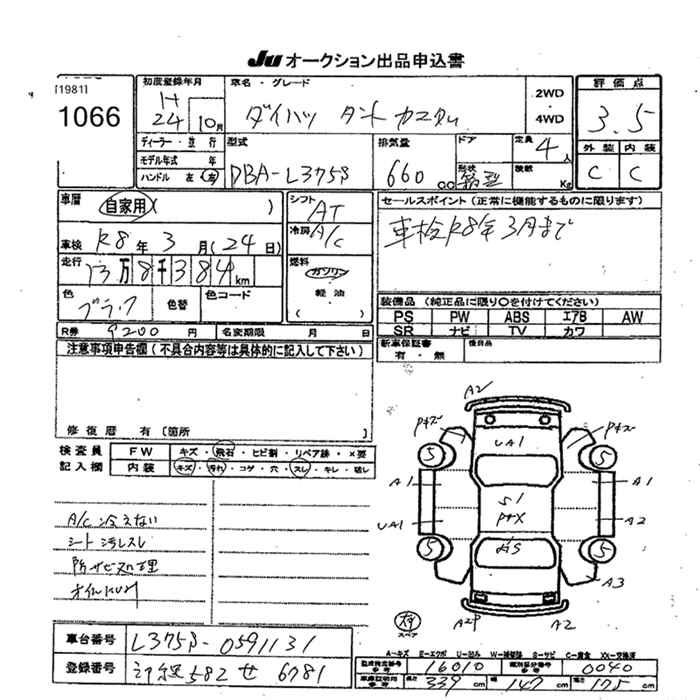 Ju オークション出品申込書
[1981]
1066
初度登録年月
H
24 10月
車名・グレード
ダイハツ タント カスタム
2WD
・
4WD
評価点
3.5
外装 内装
C C
ディーラー・並行
モデル年式 年
ハンドル 左 右
型式
DBA-L375S
排気量
660 cc
ドア
形状
箱型
定員
4人
積載
Kg
車歴
自家用( )
シフト
AT
車検 R8年3月(24日)
冷房
A/C
走行
13万8千384km
燃料
ガソリン
・
軽油
( )
色
ブラック
色替
色コード
セールスポイント(正常に機能するものに限ります)
車検R8年3月まで
装備品 (純正品に限り○を付けてください)
PS PW ABS エアB AW
SR ナビ TV カワ
新車保証書
有・無
後日品
R券 9200円 名変期限 月 日
注意事項申告欄(不具合内容等は具体的に記入して下さい)
修復歴 有 [箇所 ]
検査員
記入欄
FW キズ・飛石・ヒビ割・リペア跡・×要
内装 キズ・汚れ・コゲ・穴・スレ・キレ・破レ
A/C冷えない
シート汚レスレ
防サビ処理
A2
Pキズ Pキズ
UA1
5 5
A1 A1
S1
UA1 A2
5 5
A3
A2 A2
スペア
車台番号 L375S-0591131
登録番号 582 せ 6781
A-キズ E-エクボ U-凹み W-補修跡 S-サビ C-腐食 XX-交換済
型式指定番号
参考
16010
類別区分番号
参考
0040
長さ 339cm 幅 147cm 高さ 175cm